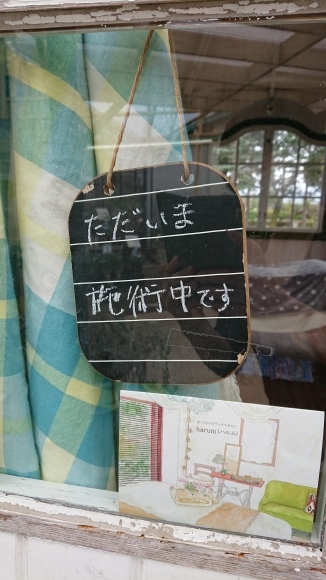 ただいま
施術中です
harum(ハルム)